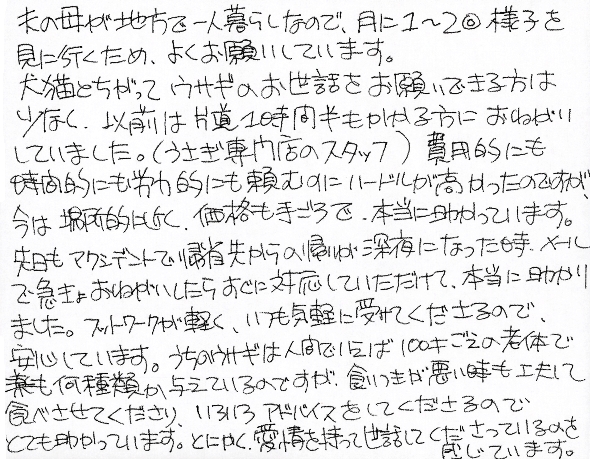 夫の母が地方で一人暮らしなので、月に1〜2回様子を
見に行くため、よくお願いしています。
犬猫とちがってウサギのお世話をお願いできる方は
少なく、以前は片道1時間半もかかる方におねがい
していました。(うさぎ専門店のスタッフ) 費用的にも
時間的にも労力的にも頼むのにハードルが高かったのですが、
今は場所的に近く、価格も手ごろで、本当に助かっています。
先日もアクシデントで帰省先からの帰りが深夜になった時、メール
で急きょおねがいしたらすぐに対応していただけて、本当に助かり
ました。フットワークが軽く、いつも気軽に受けてくださるので、
安心しています。うちのウサギは人間でいえば100才ごえの老体で
薬も何種類か与えているのですが、食いつきが悪い時も工夫して
食べさせてくださり、いろいろアドバイスをしてくださるので
とても助かっています。とにかく、愛情を持って世話してくださっているのを
感じています。